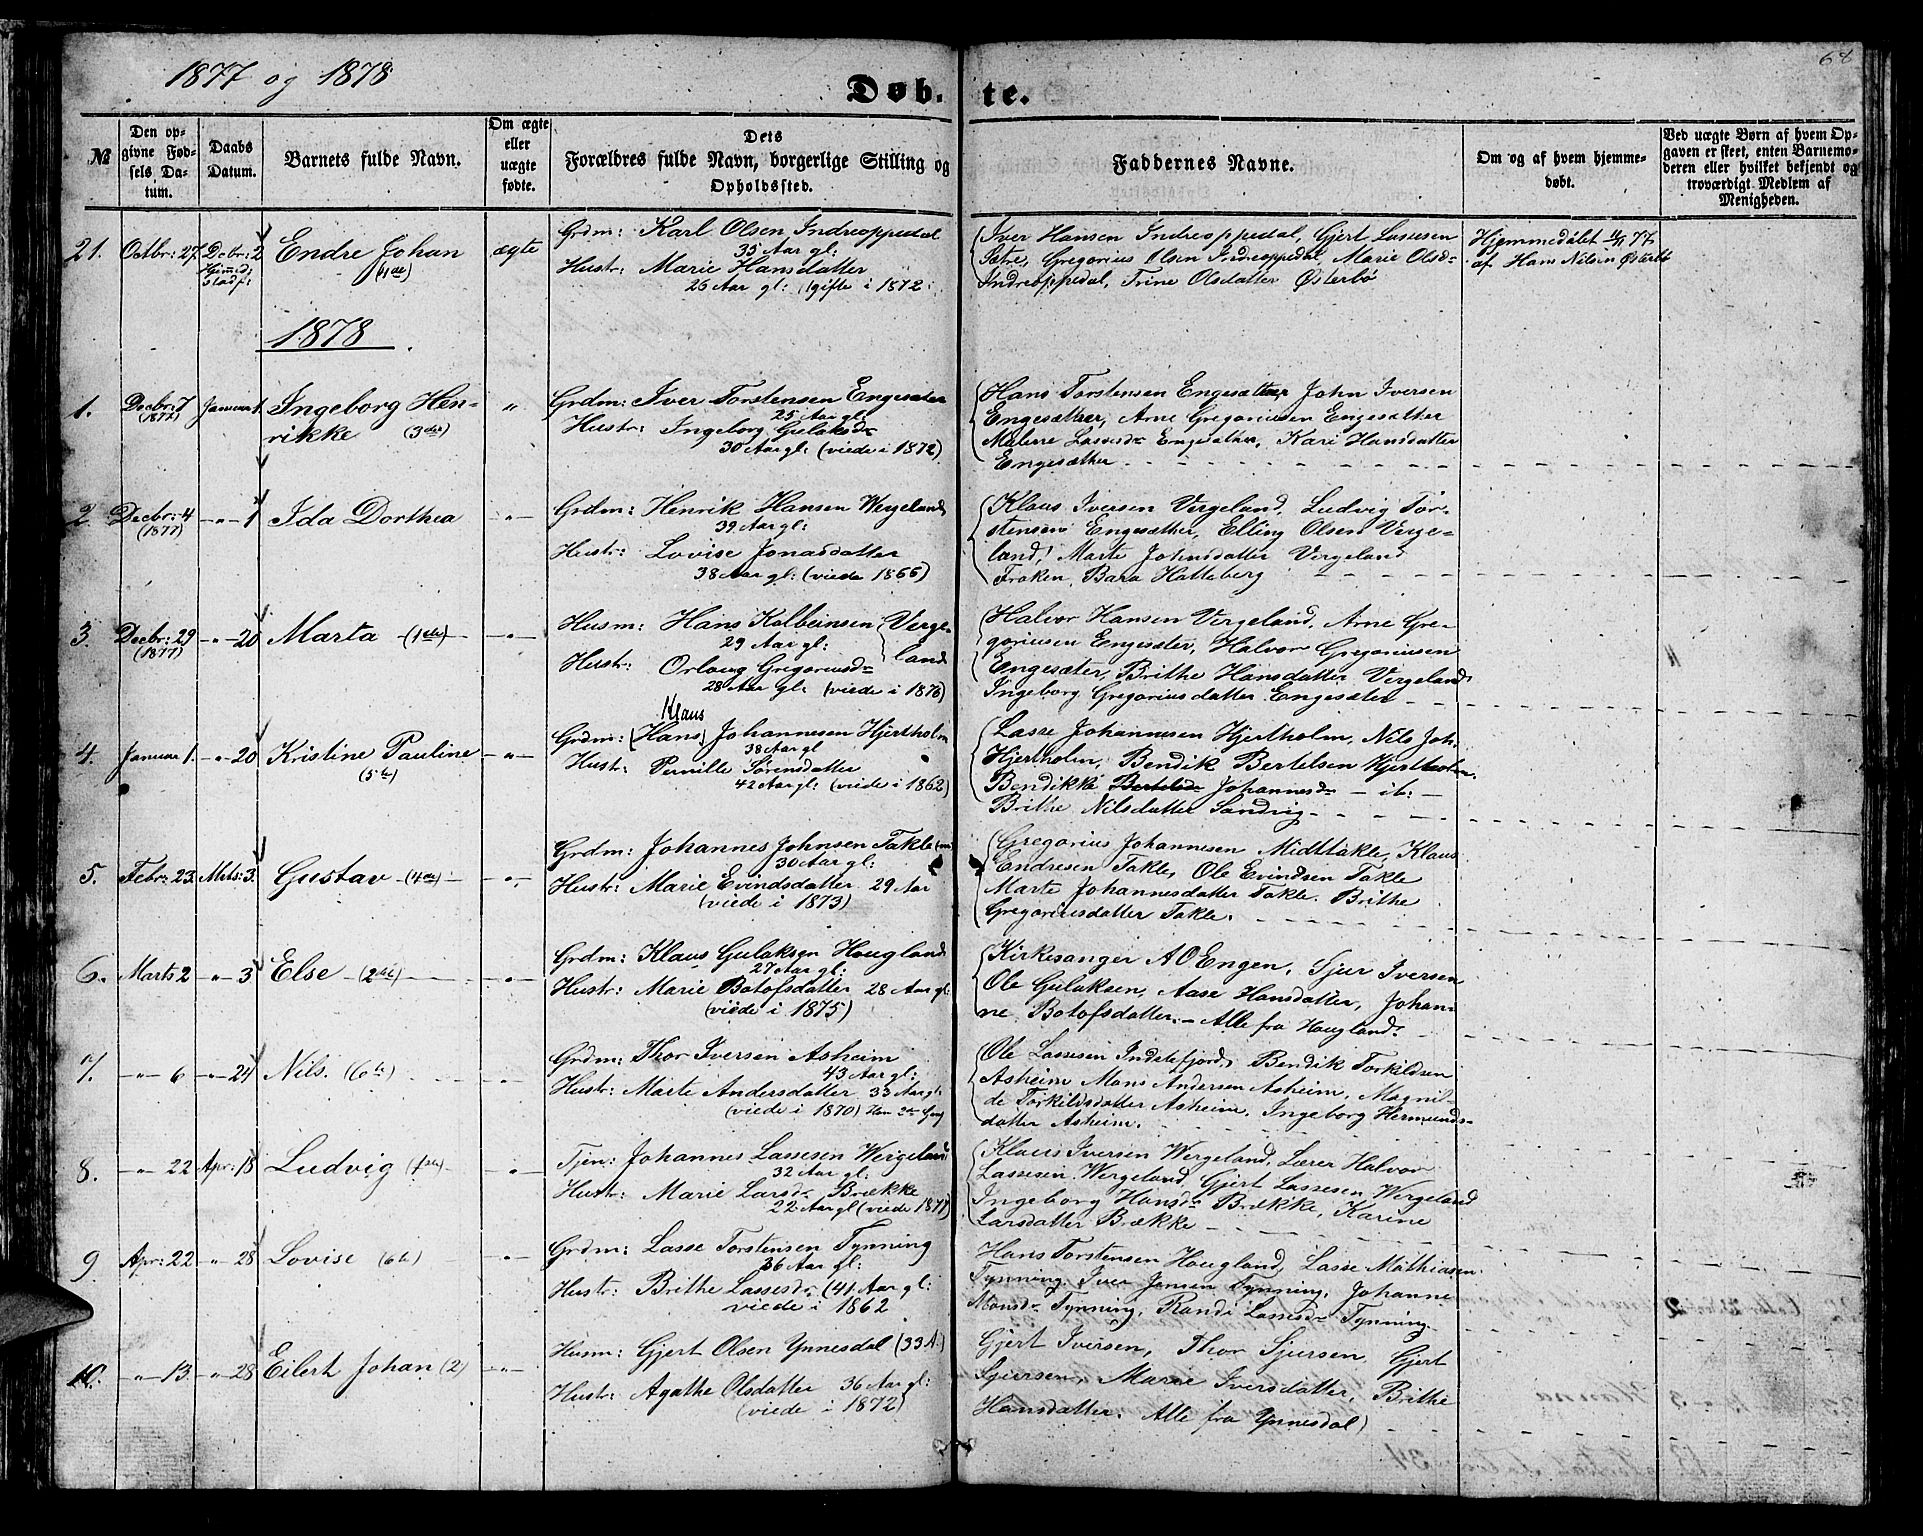 1877 og 1878
68
Døb-te.
№
Den opgivne Fødsels Datum.
Daabs Datum.
Barnets fulde Navn.
Om ægte eller uægte fødte.
Dets Forældres fulde Navn, borgerlige Stilling og Opholdssted.
Faddernes Navne.
Om og af hvem hjemmedøbt.
Ved uægte Børn af hvem Opgaven er skeet, enten Barnemoderen eller hvilket bekjendt og troværdigt Medlem af Menigheden.
21. Octbr: 27. Decbr: 2 Endre Johan ægte
Hjemmed: Stadf:
Grdm: Karl Olsen Indreoppedal
35 Aar gl:
Hustr: Marie Hansdatter
26 Aar gl: (gifte i 1872
Iver Hansen Indreoppedal, Gjert Lassesen
Sætre, Gregorius Olsen Indreoppedal, Marie Olsd-
Indreoppedal, Trine Olsdatter Østerbø
Hjemmedøbt 11/11 77
af Hans Nilsen Østerbø
1878
1. Decbr: 7 (1877) Januar 1. Ingeborg Hen-
rikke (3die) "
Grdm: Iver Torstensen Engesæter
25 Aar gl:
Hustr: Ingeborg Gulaksd-
30 Aar gl: (viede i 1872)
Hans Torstensen Engesæther, John Iversen
Engesæther, Arne Gregoriusen Engesætter
Malene Lassesd- Engesæther, Kari Hansdatter
Engesæther
2 Decbr: 4 (1877) -"- 1 Ida Dorthea -"-
Grdm: Henrik Hansen Wergeland
39 Aar gl:
Hustr: Lovise Jonasdatter
38 Aar gl: (viede 1866)
Klaus Iversen Vergeland, Ludvig Tor-
stensen Engesæther, Elling Olsen Verge-
land, Marte Johnsdatter Vergeland
Frøken, Bara Hatleberg
3. Decbr: 29 (1877) -"- 20 Marta (1ste) -"-
Husm: Hans Kolbeinsen
29 Aar gl:
Hustr: Orloug Gregoriusd-
28 Aar gl: (viede i 1876)
Verge-
land
Halvor Hansen Vergeland, Arne Gre-
goriusen Engesæter, Halvor Gregoriusen
Engesæter, Brithe Hansdatter Vergeland
Ingeborg Gregoriusdatter Engesæter
4. Januar 1. -"- 20 Kristine Pauline (5te) -"-
Klaus
Grdm: (Hans) Johannesen Hjertholm
38 Aar gl
Hustr: Pernille Sørensdatter
42 Aar gl: (viede i 1862)
Lasse Johannesen Hjertholm, Nils Joh.
Hjertholm, Bendik Bertelsen Hjertholm
Bendikke Bertelsd- Johannesd- - ib: -
Brithe Nilsdatter Sandvig
5. Febr: 23. Mrts: 3. Gustav (4de) -"-
Grdm: Johannes Johnsen Takle
30 Aar gl:
Hustr: Marie Evindsdatter 29 Aar
(viede i 1873)
Gregorius Johannesen Midttakle, Klaus
Endresen Takle, Ole Evindsen Takle
Marte Johannesdatter Takle. Brithe
Gregoriusdatter Takle.
6. Marts 2 -"- 3 Else (2de) -"-
Grdm: Klaus Gulaksen Hougland
27 Aar gl:
Hustr: Marie Botofsdatter 28 Aar gl:
(viede i 1875)
Kirkesanger A O Engen, Sjur Iversen
Ole Gulaksen, Aase Hansdatter, Johan-
ne Botofsdatter. - Alle fra Hougland.
7. -"- 6 -"- 24 Nils. (6te) -"-
Grdm: Thor Iversen Asheim
43 Aar gl:
Hustr: Marte Andersdatter 33 Aar gl:
(viede i 1870) Han 2den Gang
Ole Lassesen Indrefjord, Bendik Torkildsen
Asheim Mons Andersen Asheim, Magnil-
de Torkildsdatter Asheim, Ingeborg Hermunds-
datter Asheim.
8. -"- 22 Apr: 18 Ludvig (1ste) -"-
Tjen: Johannes Lassesen Wergeland
32 Aar gl:
Hustr: Marie Larsd- Brække
22 Aar gl (viede 1877)
Klaus Iversen Wergeland, Lærer Halvor
Lassesen Wergeland, Gjert Lassesen Wergeland
Ingeborg Hansd- Brække, Karine
Larsdatter Brække
9. Apr: 22 -"- 28 Lovise (6te) -"-
Grdm: Lasse Torstensen Tynning
36 Aar gl:
Hustr: Brithe Lassesd- (41 Aar gl:
viede i 1862
Hans Torstensen Hougland, Lasse Mathiasen
Tynning, Iver Jensen Tynning, Johanne
Monsd- Tynning, Randi Lassesd- Tynning
10. -"- 13. -"- 28 Eilert Johan (2) -"-
Husm: Gjert Olsen Ynnesdal (33 A.)
Hustr: Agathe Olsdatter 36 Aar gl:
(viede i 1872)
Gjert Iversen, Thor Sjursen, Gjert
Sjursen, Marie Iversdatter, Brithe
Hansdatter. Alle fra Ynnesdal)